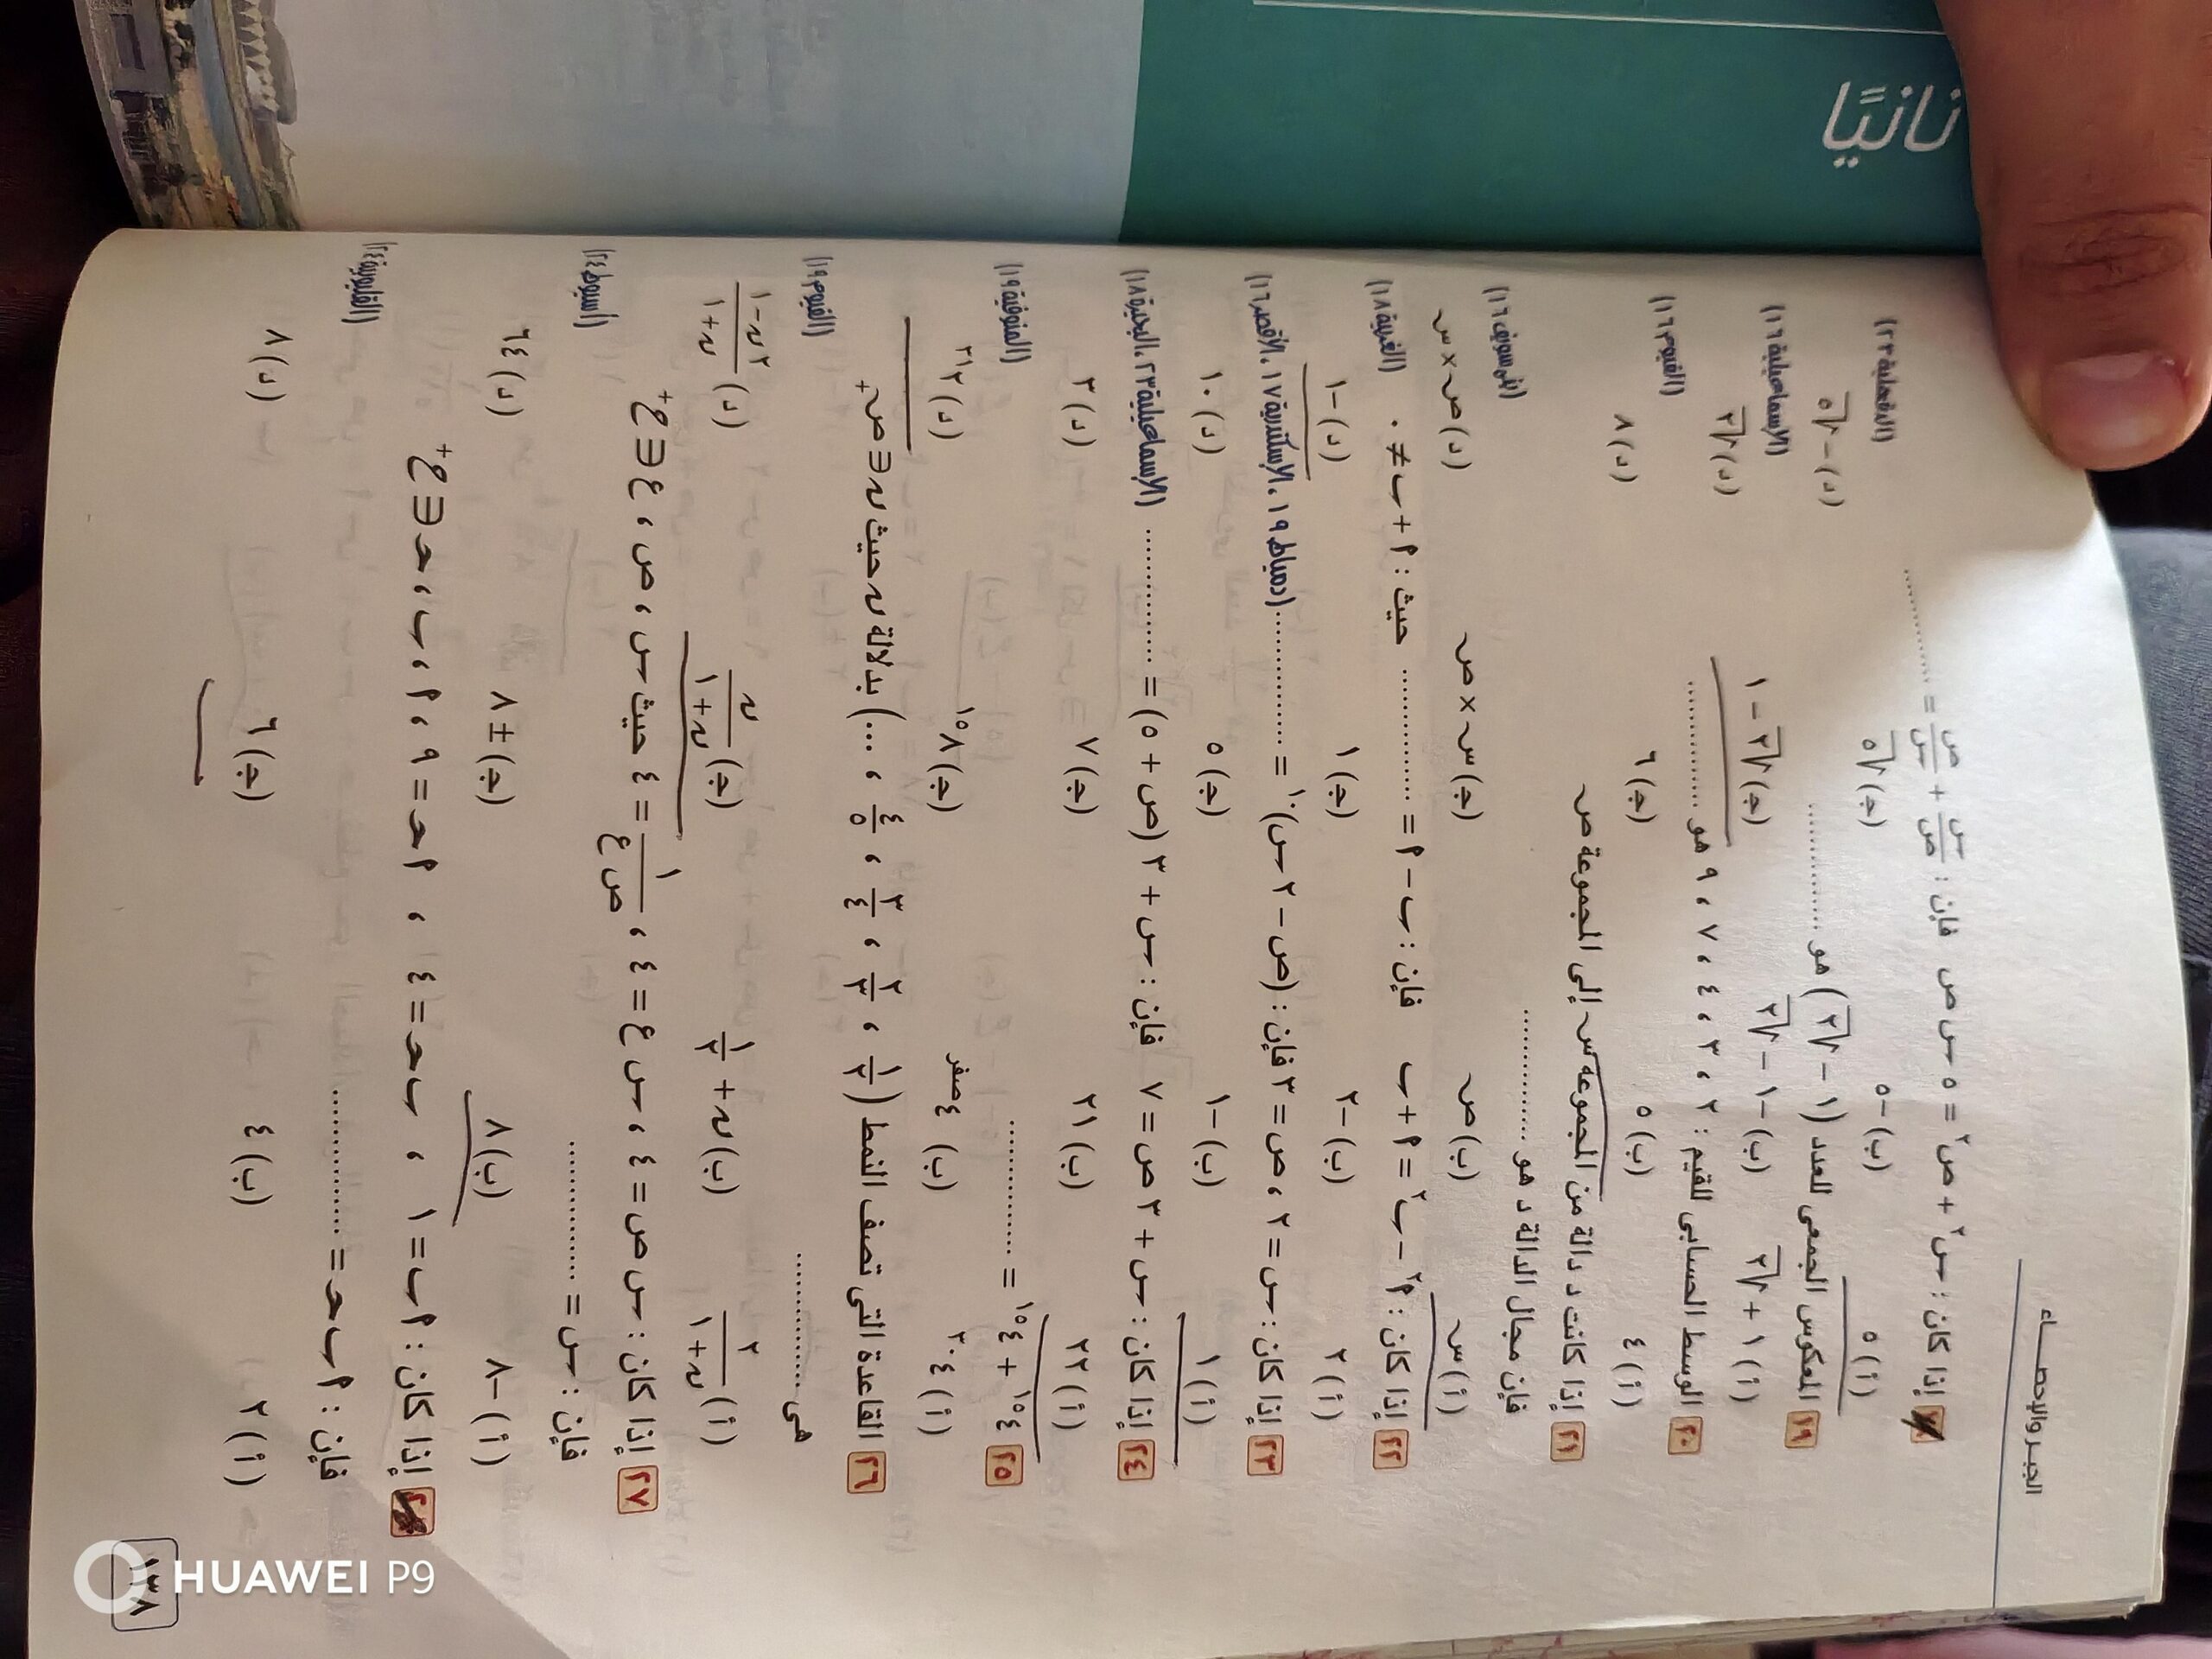 الجبر والإحصاء
إذا كان : س٢ + ص٢ = ٥ س ص فإن : س/ص + ص/س = ............ (الدقهلية ٢٣)
(أ) ٥ (ب) -٥ (ج) √٥ (د) -√٥
١٩ المعكوس الجمعى للعدد (١ - √٢) هو ............ (الإسماعيلية ١٦)
(أ) ١ + √٢ (ب) -١ - √٢ (ج) √٢ - ١ (د) √٢
٢٠ الوسط الحسابى للقيم : ٢ ، ٣ ، ٤ ، ٧ ، ٩ هو ............ (الفيوم ١٦)
(أ) ٤ (ب) ٥ (ج) ٦ (د) ٨
٢١ إذا كانت د دالة من المجموعة س إلى المجموعة ص
فإن مجال الدالة د هو ............ (بنى سويف ١٦)
(أ) س (ب) ص (ج) س × ص (د) ص × س
٢٢ إذا كان : ٢أ - ٢ب = أ + ب فإن : ب - أ = ............ حيث : أ + ب ≠ ٠ (الغربية ١٨)
(أ) ٢ (ب) -٢ (ج) ١ (د) -١
٢٣ إذا كان : س = ٢ ، ص = ٣ فإن : (ص - ٢ س)١٠ = ............ (دمياط ١٩، الإسكندرية ١٧، الأقصر ١٦)
(أ) ١ (ب) -١ (ج) ٥ (د) ١٠
٢٤ إذا كان : س + ٣ ص = ٧ فإن : س + ٣ (ص + ٥) = ............ (الإسماعيلية ٢٣، البحيرة ١٨)
(أ) ٢٢ (ب) ٢١ (ج) ٧ (د) ٣
٢٥ ٤١٥ + ٤١٥ = ............ (المنوفية ١٩)
(أ) ٤٣٠ (ب) ٤صفر (ج) ٨١٥ (د) ٢٣١
٢٦ القاعدة التى تصف النمط (١/٢ ، ٢/٣ ، ٣/٤ ، ٤/٥ ، ...) بدلالة ن حيث ن ∈ ص+
هى ............ (الفيوم ١٩)
(أ) ٢/(ن + ١) (ب) ن + ١/٢ (ج) ن/(ن + ١) (د) (٢ن - ١)/(ن + ١)
٢٧ إذا كان : س ص = ٤ ، س ع = ٤ ، ١/(ص ع) = ٤ حيث س ، ص ، ع ∈ ح+
فإن : س = ............ (أسيوط ٢٤)
(أ) -٨ (ب) ٨ (ج) ± ٨ (د) ٦٤
إذا كان : أ ب = ١ ، ب ح = ٤ ، أ ح = ٩ ، أ ، ب ، ح ∈ ح+
فإن : أ ب ح = ............ (القليوبية ٢٤)
(أ) ٢ (ب) ٤ (ج) ٦ (د) ٨
١٣٨
HUAWEI P9